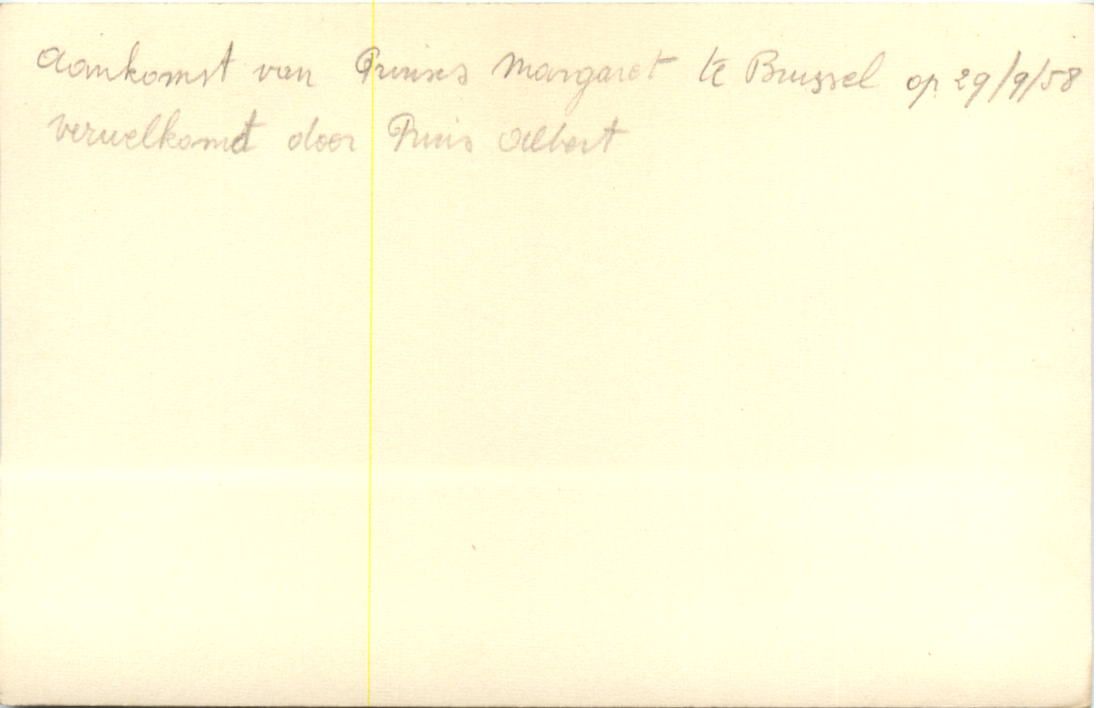 Aankomst van Prinses Margaret te Brussel op 29/9/58
verwelkomd door Prins Albert